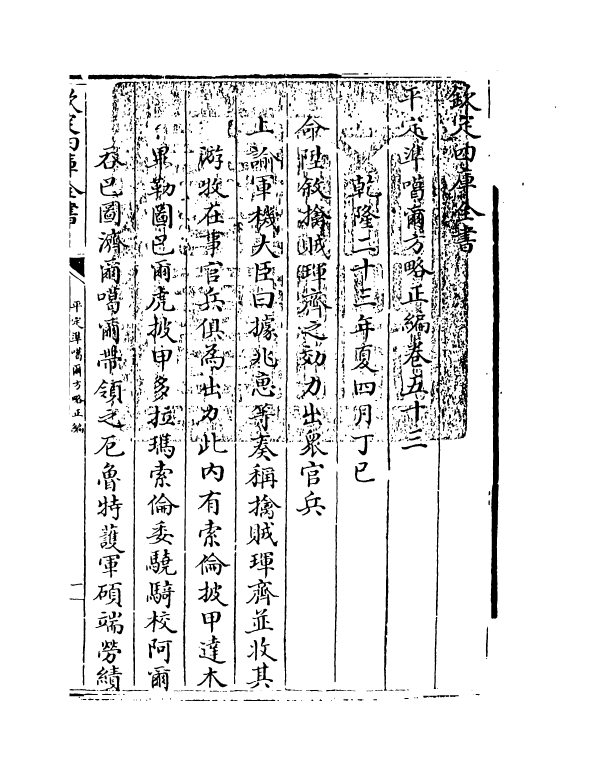 欽定四庫全書
平定準噶爾方略正編卷五十三
乾隆二十三年夏四月丁巳
命陞敘擒賊琿齊之効力出衆官兵
上諭軍機大臣曰據兆惠等奏稱擒賊琿齊並收其
游牧在事官兵俱為出力此内有索倫披甲達木
畢勒圖巴爾虎披甲多拉瑪索倫委驍騎校阿爾
吞巴圖濟爾噶爾帶領之厄魯特護軍碩端勞績
欽定四庫全書
平定準噶爾方略正編
一